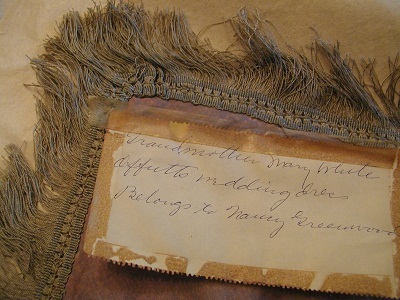 Grandmother Mary White
Moffetts wedding dress
Belongs to Nancy Greenwood